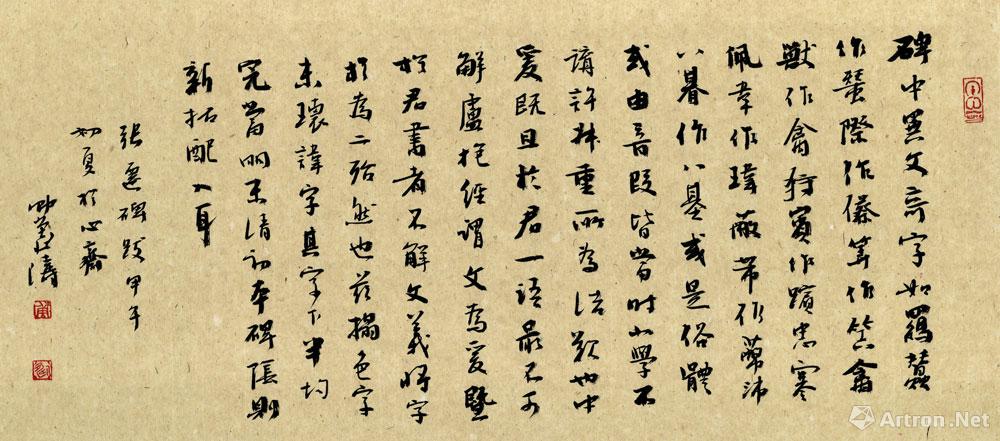 碑中異文奇字如羈蠶
作蝅際作傺筭作笇禽
獸作禽狩賓作忠謇
佩韋作瑋蔽芾作沛
八朞作八基或是俗體
或由音叚皆當時小學不
講許叔重所為浩歎也中
爰既且於君一語最不可
解盧抱經謂文為爰暨
於君書者不解文義將字
析為二殆然也茲搨色字
未壞諱字其字下半均
完當明末清初本碑陰則
新拓配入耳
張遷碑跋甲午
初夏於心齋
濤
Artron.Net